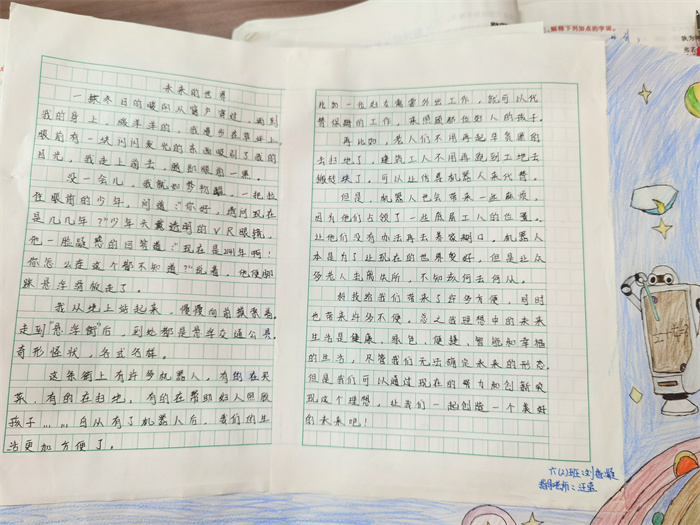 未来的世界
一缕冬日的暖阳从窗户穿过，照到
我的身上，暖洋洋的，我漫步在草坪上，
眼前有一块闪闪发光的东西吸引了我的
目光，我走上前去，随即眼前一黑。
没一会儿，我就如梦初醒，一把拉
住眼前的少年，问道："你好，请问现在
是几几年？"少年天戴透明的VR眼镜，
他一脸疑惑的回答道："现在是2141年啊！
你怎么连这个都不知道？"说着，他便脚
踩悬浮滑板走了。
我从地上站起来，慢慢向前摸索着，
走到"悬浮街"后，到处都是悬浮交通公具，
奇形怪状，各式各样。
这条街上有许多机器人，有的在买
菜，有的在扫地，有的在帮助妇人照顾
孩子……自从有了机器人后，我们的生
活更加方便了。
比如一位妇女需要外出工作，就可以代
替保姆的工作，来照顾那位妇人的孩子。
再比如，老人们不用再起早贪黑的
去扫地了，建筑工人不用再跑到工地去
搬砖块了。可以让仿真机器人来代替。
但是，机器人也会带来一些麻烦，
因为他们占领了一些底层工人的位置。
让他们没有办法再去养家糊口。机器人
本是为了让现在的世界更好，但是让众
多老人去离失所，不知该何去何从。
科技给我们带来了许多方便，同时
也带来许多不便。总之我理想中的未来
生活是健康、绿色、便捷、智能和幸福
的生活，尽管我们无法确定未来的形态，
但是我们可以通过现在的努力和创新实
现这个理想，让我们一起创造一个美好
的未来吧！
六(2)班：刘
指导老师：汪
解释下列加点的字词。